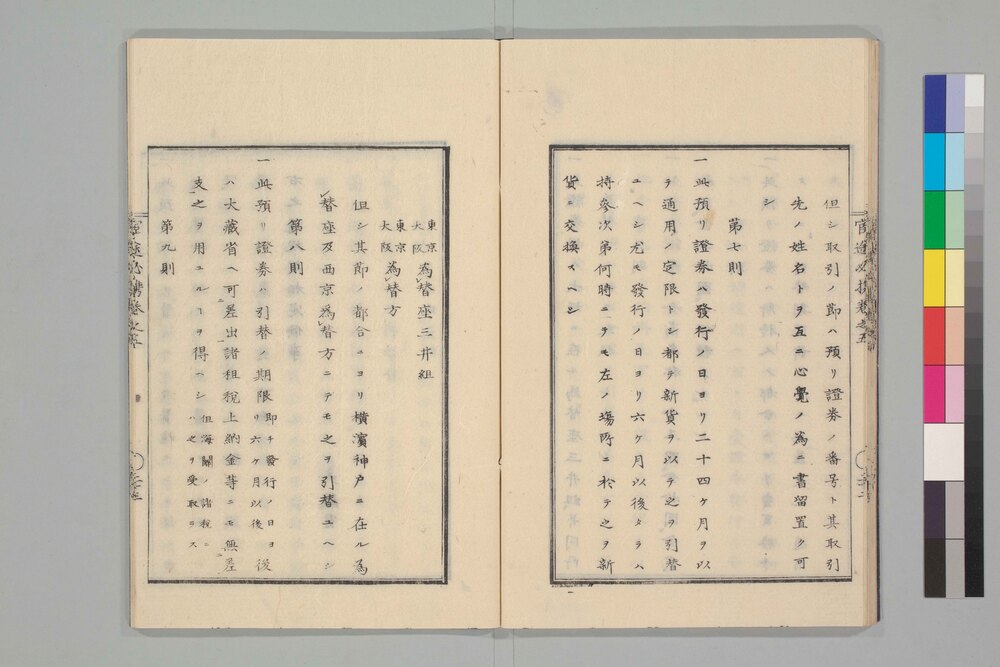 但シ取引ノ節ハ預リ證券ノ番号ト其取引
先ノ姓名トヲ互ニ心覺ノ為ニ書留置ク可
シ
第七則
一此預リ證券ハ發行ノ日ヨリ二十四ケ月ヲ以
テ通用ノ定限トシ都テ新貨ヲ以テ之ヲ引替
ユヘシ尤モ發行ノ日ヨリ六ケ月以後タラハ
持參次第何時ニテモ左ノ塲所ニ於テ之ヲ新
貨ニ交換スヘシ
東京
大阪為替座三井組
東京
大阪為替方
但シ其節ノ都合ニヨリ横濱神戸ニ在ル為
替座及西京為替方ニテモ之ヲ引替ユヘシ
第八則
一此預リ證券ハ引替ノ期限即チ發行ノ日ヨリ六ケ月以後後
ハ大藏省ヘ可差出諸租税上納金等ニモ無差
支之ヲ用ユルヿヲ得ヘシ但海關ノ諸税ニハ之ヲ受取ラス
第九則
官途必携卷之五